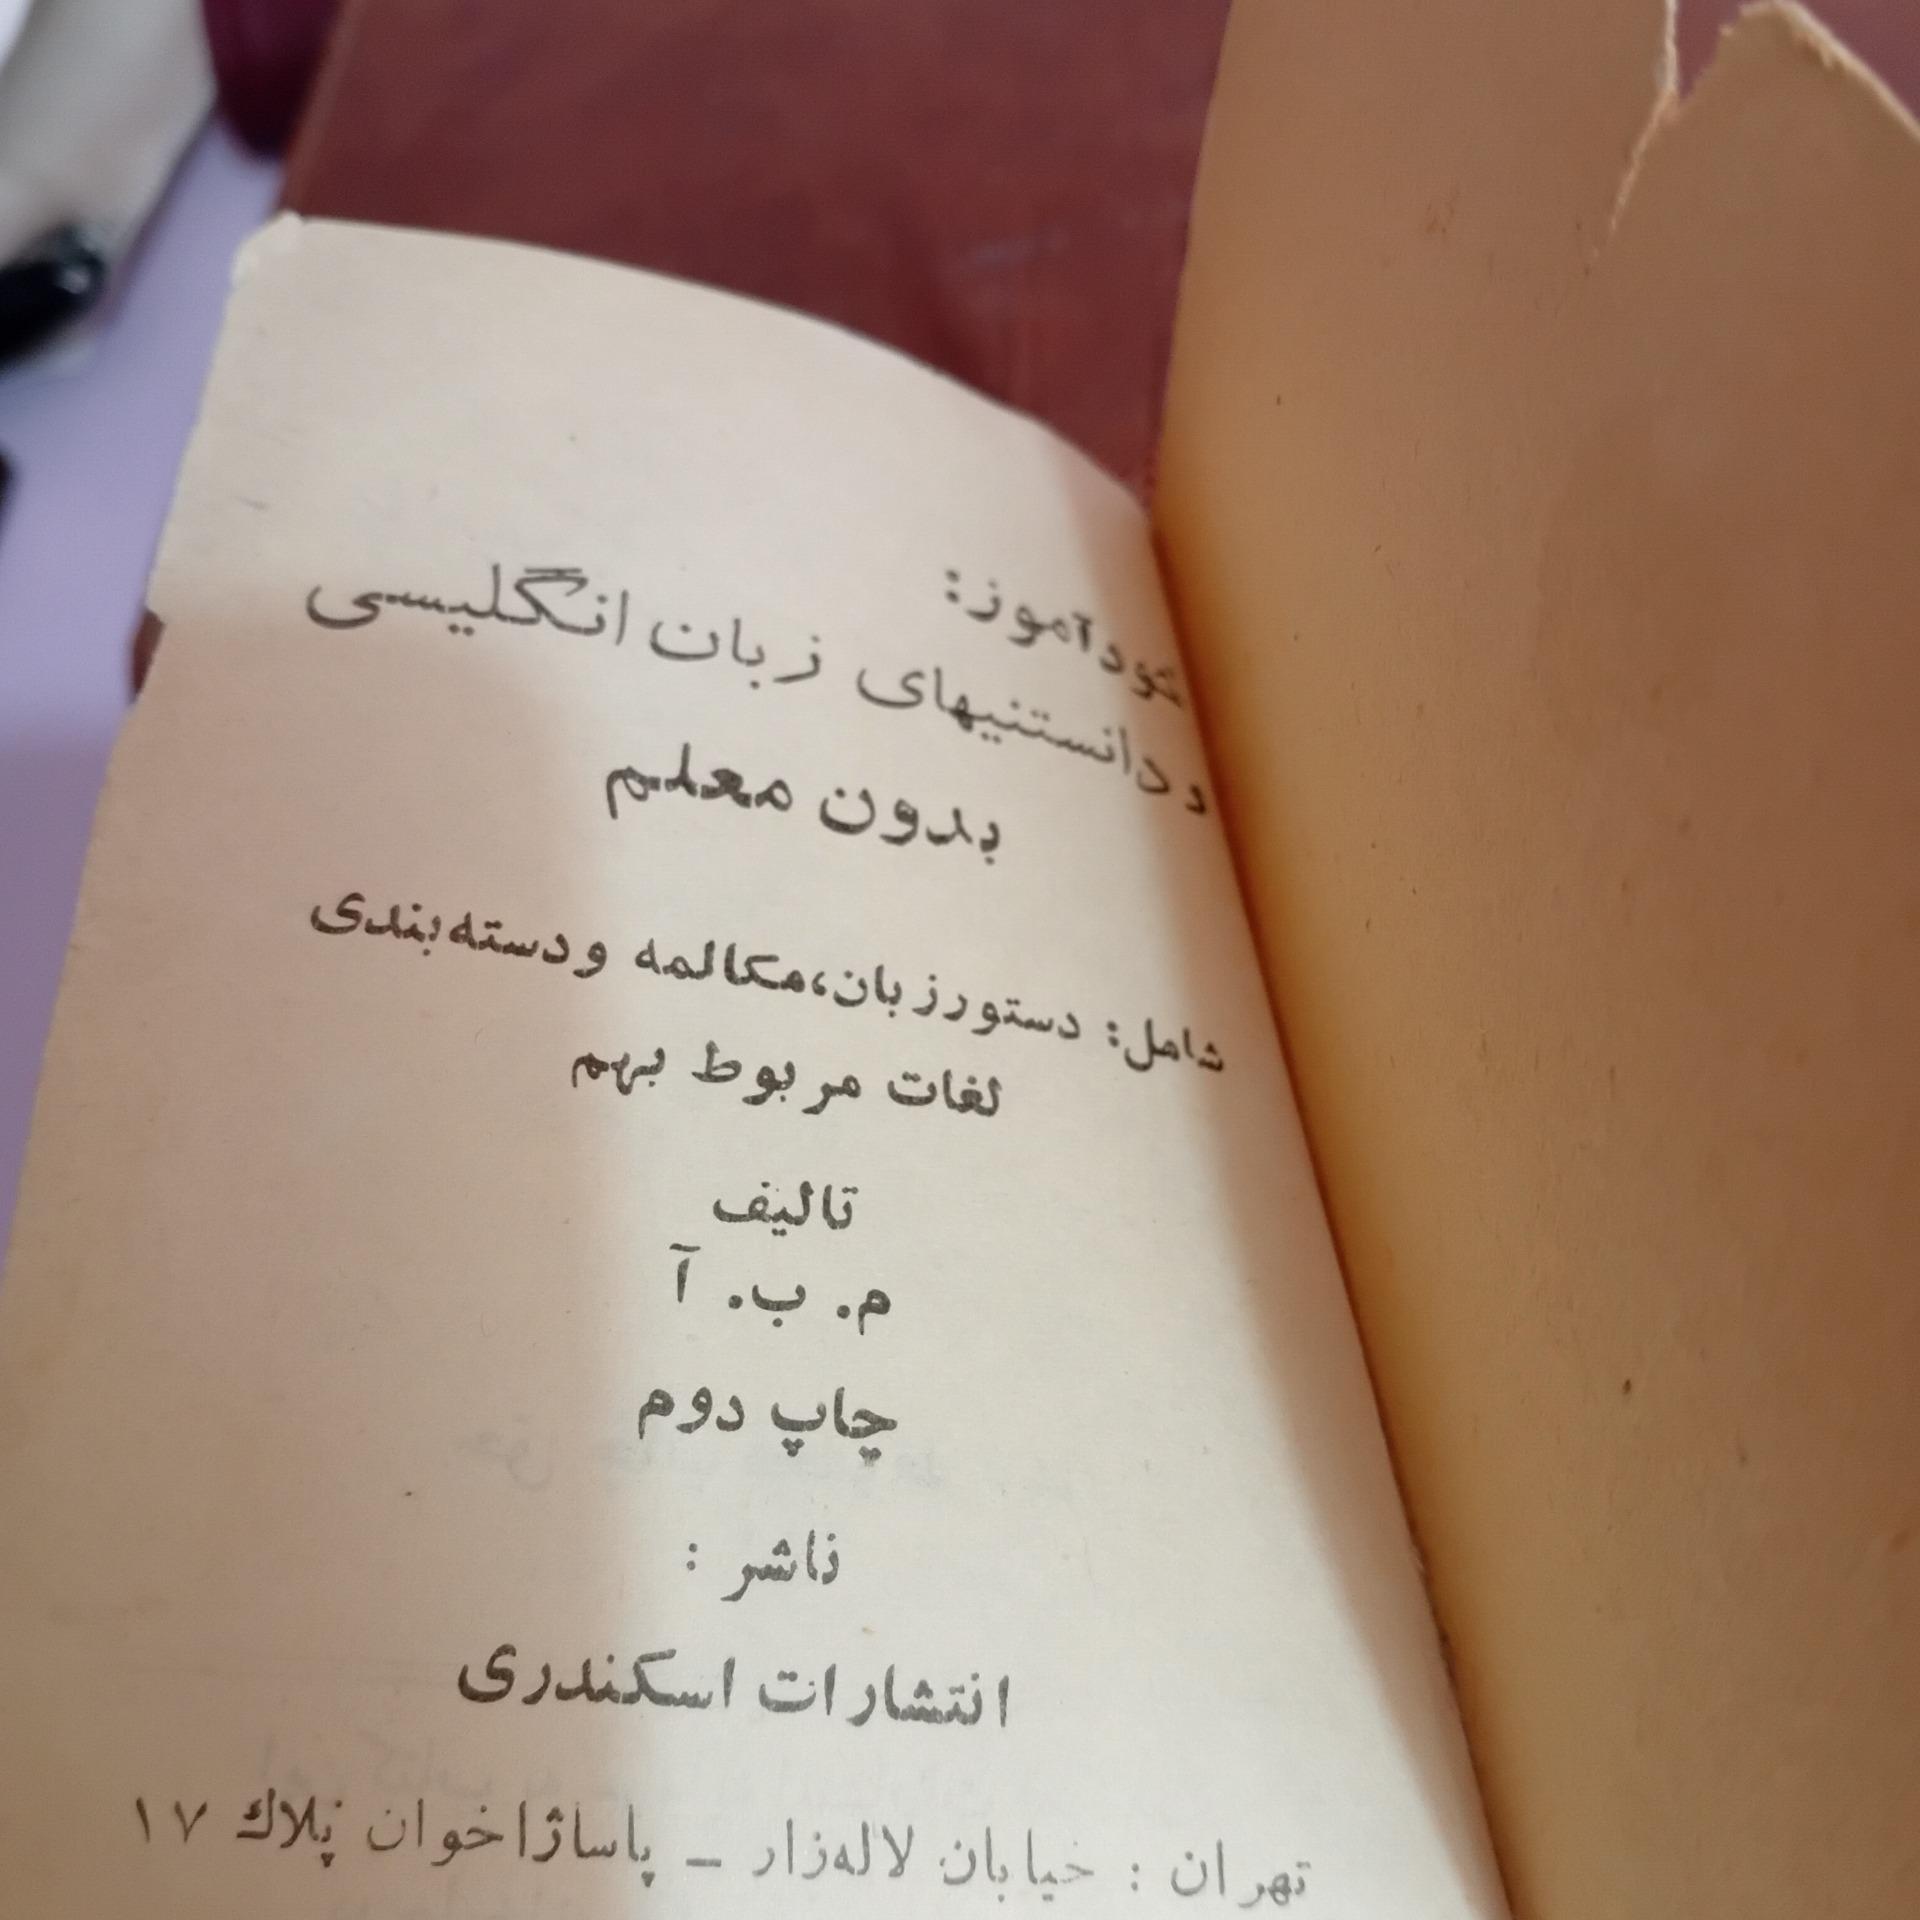 خودآموز:
و دانستنیهای زبان انگلیسی
بدون معلم
شامل: دستورزبان،مکالمه ودسته‌بندی
لغات مربوط بهم
تالیف
م. ب. آ
چاپ دوم
ناشر :
انتشارات اسکندری
تهران : خیابان لاله‌زار – پاساژاخوان پلاك ۱۷